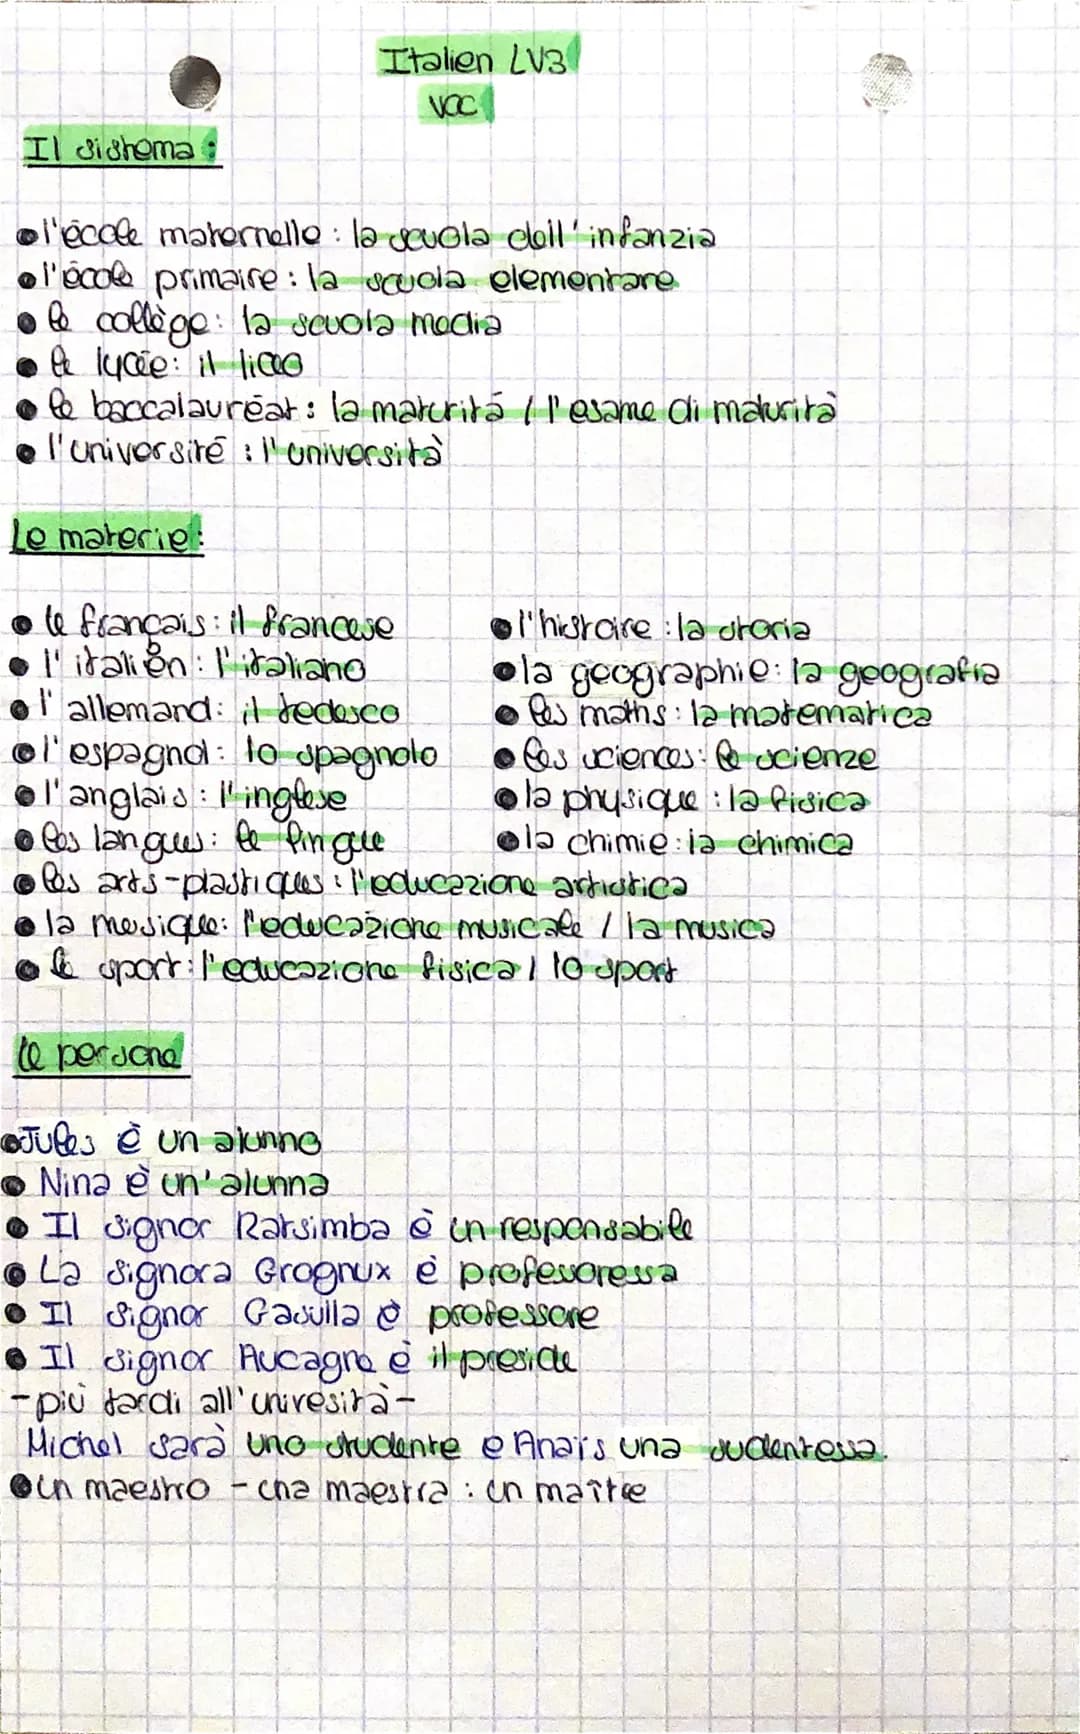 Italien LV3
VOC
Il sistema :
• l'école maternelle : la scuola dell'infanzia
• l'école primaire : la scuola elementare
• le collège : la scuola media
• le lycée : il liceo
• le baccalauréat : la maturitá / l'esame di maturità
• l'université : l'università
Le materie :
• le français : il francese
• l'italien : l'italiano
• l'allemand : il tedesco
• l'espagnol : lo spagnolo
• l'anglais : l'inglese
• les langues : le lingue
• l'histoire : la storia
• la geographie : la geografia
• les maths : la matematica
• les sciences : le scienze
• la physique : la fisica
• la chimie : la chimica
• les arts-plastiques : l'educazione artistica
• la musique : l'educazione musicale / la musica
• le sport : l'educazione fisica / lo sport
Le persone
• Jules è un alunno
• Nina è un'alunna
• Il signor Ratsimba è un responsabile
• La signora Grognux è professoressa
• Il signor Gasulla è professore
• Il signor Aucagne è il preside
- più tardi all'univesità -
Michel sarà uno studente e Anaïs una sudentessa.
• un maestro - una maestra : un maître